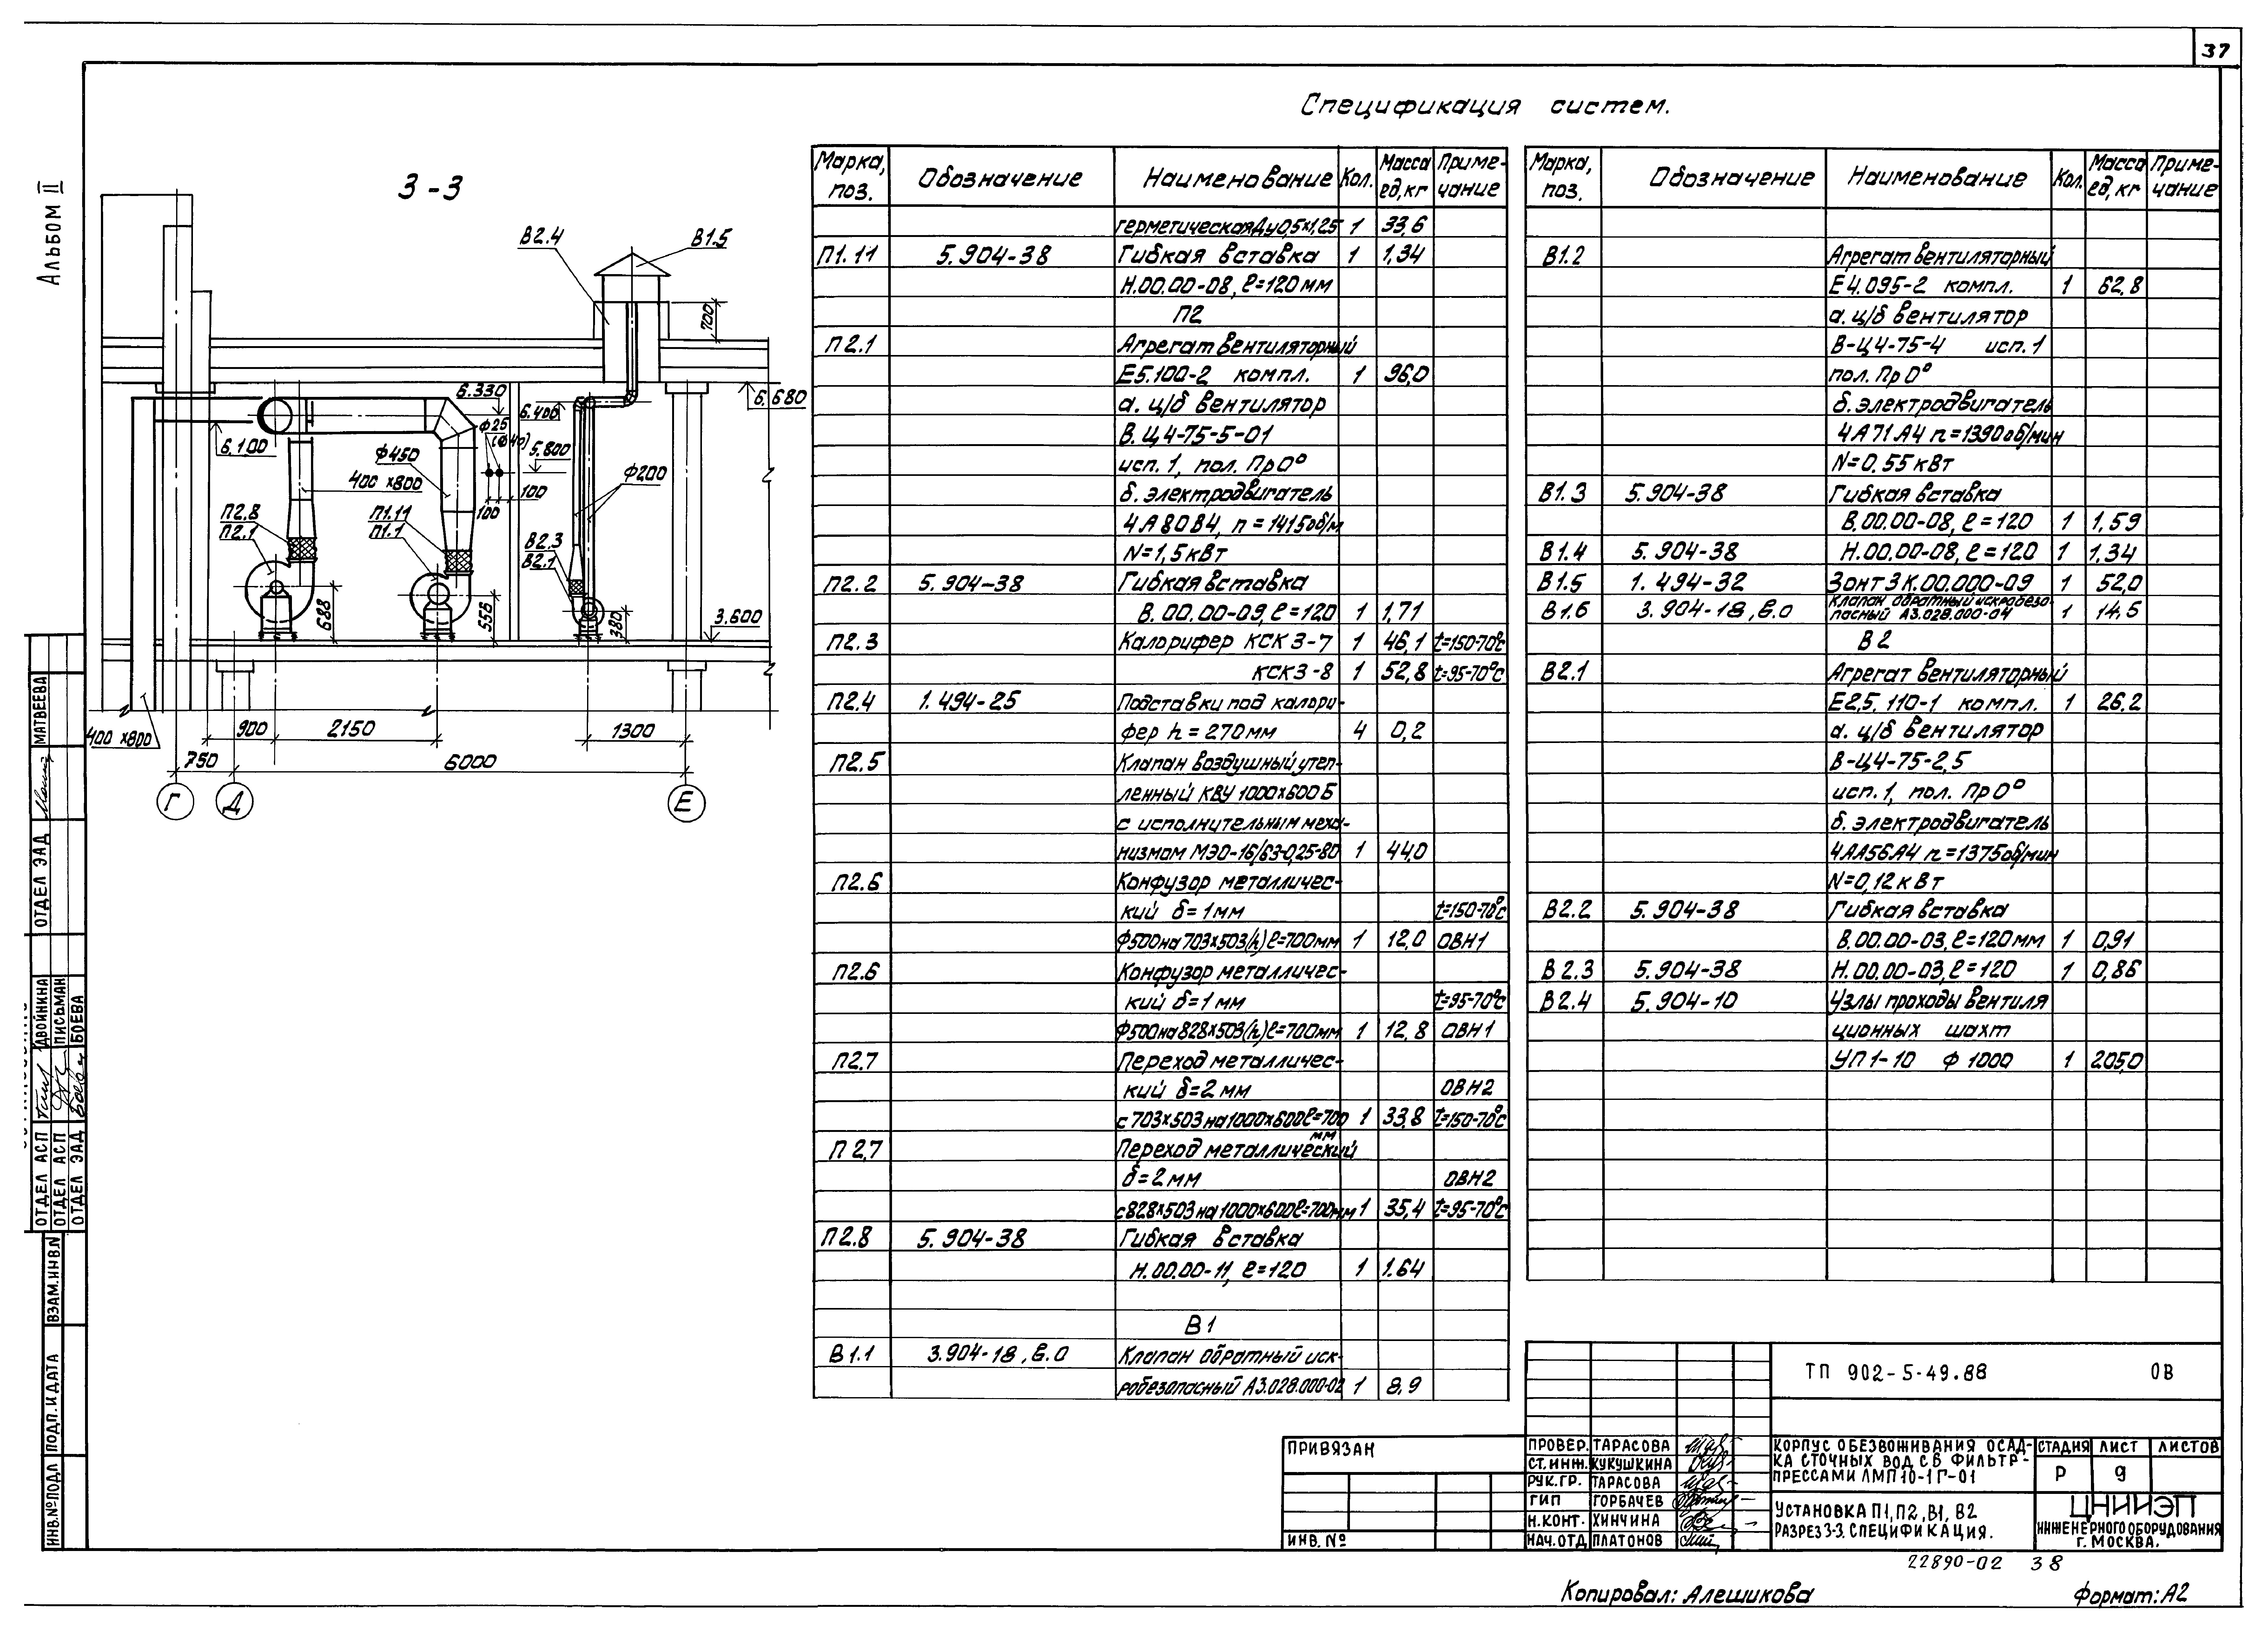 37
Альбом II
Спецификация систем.
3-3
В2.4
В1.5
700
6.330
6.680
6.400
ф25
(ф40)
6.100
ф450
5.800
400×800
ф200
100
100
П2.8
П2.1
П1.11
П1.1
В2.3
В2.1
688
558
380
3.600
400×800
900
2150
1300
750
6000
Г
Д
Е
Марка, поз. Обозначение Наименование Кол. Масса ед,кг Приме-чание
герметическая Ду0,5×1,25 1 33,6
П1.11 5.904-38 Гибкая вставка 1 1,34
Н.00.00-08, ℓ=120мм
П2
П2.1 Агрегат вентиляторный
Е5.100-2 компл. 1 96,0
а. ц/б вентилятор
В.Ц4-75-5-01
исп. 1, пол. Пр0°
б. электродвигатель
4А80В4, n=1415об/м
N=1,5кВт
П2.2 5.904-38 Гибкая вставка
В.00.00-09, ℓ=120 1 1,71
П2.3 Калорифер КСК 3-7 1 46,1 t=150-70°с
КСК3-8 1 52,8 t=95-70°с
П2.4 1.494-25 Подставки под калори-
фер h=270мм 4 0,2
П2.5 Клапан воздушный утеп-
ленный КВУ 1000×600Б
с исполнительным меха-
низмом МЭО-16/63-0,25-80 1 44,0
П2.6 Конфузор металличес-
кий δ=1мм t=150-70°с
ф500на703×503(h)ℓ=700мм 1 12,0 ОВН1
П2.6 Конфузор металличес-
кий δ=1мм t=95-70°с
ф500на828×503(h)ℓ=700мм 1 12,8 ОВН1
П2.7 Переход металличес-
кий δ=2мм ОВН2
с703×503на1000×600ℓ=700 1 33,8 t=150-70°с
мм
П2.7 Переход металлический
δ=2мм ОВН2
с828×503на1000×600ℓ=700мм 1 35,4 t=95-70°с
П2.8 5.904-38 Гибкая вставка
Н.00.00-11, ℓ=120 1 1.64
В1
В1.1 3.904-18, в.0 Клапан обратный иск-
робезопасный А3.028.000-02 1 8,9
Марка, поз. Обозначение Наименование Кол. Масса ед,кг Приме-чание
В1.2 Агрегат вентиляторный
Е4.095-2 компл. 1 62,8
а. ц/б вентилятор
В-Ц4-75-4 исп.1
пол. Пр0°
б. электродвигатель
4А71А4 n=1390об/мин
N=0,55кВт
В1.3 5.904-38 Гибкая вставка
В.00.00-08, ℓ=120 1 1,59
В1.4 5.904-38 Н.00.00-08, ℓ=120 1 1.34
В1.5 1.494-32 Зонт ЗК.00.000-09 1 52,0
В1.6 3.904-18, в.0 Клапан обратный искробезо-
пасный А3.028.000-04 1 14,5
В2
В2.1 Агрегат вентиляторный
Е2,5.110-1 компл. 1 26.2
а. ц/б вентилятор
В-Ц4-75-2,5
исп.1, пол. Пр0°
б. электродвигатель
4АА56А4 n=1375об/мин
N=0,12кВт
В2.2 5.904-38 Гибкая вставка
В.00.00-03, ℓ=120мм 1 0,91
В2.3 5.904-38 Н.00.00-03, ℓ=120 1 0,86
В2.4 5.904-10 Узлы проходы вентиля
ционных шахт
УП1-10 ф1000 1 205,0
ОТДЕЛ ЭАД МАТВЕЕВА
ОТДЕЛ АСП ДВОЙНИНА
ОТДЕЛ АСП ПИСЬМАН
ОТДЕЛ ЭАД БОЕВА
ВЗАМ.ИНВ.N
ПОДП. И ДАТА
ИНВ.№ПОДЛ
ПРИВЯЗАН
ИНВ. №
ТП 902-5-49.88 ОВ
ПРОВЕР. ТАРАСОВА
СТ.ИНЖ. КУКУШКИНА
РУК.ГР. ТАРАСОВА
ГИП ГОРБАЧЕВ
Н.КОНТ. ХИНЧИНА
НАЧ.ОТД ПЛАТОНОВ
КОРПУС ОБЕЗВОЖИВАНИЯ ОСАД-
КА СТОЧНЫХ ВОД С 6 ФИЛЬТР-
ПРЕССАМИ ЛМП10-1Г-01
СТАДИЯ ЛИСТ ЛИСТОВ
Р 9
УСТАНОВКА П1, П2, В1, В2
РАЗРЕЗ 3-3. СПЕЦИФИКАЦИЯ.
ЦНИИЭП
ИНЖЕНЕРНОГО ОБОРУДОВАНИЯ
Г. МОСКВА.
22890-02 38
Копировал: Алешикова
Формат: А2